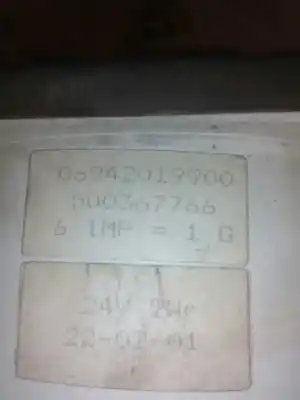 06842019900
500367766
6 IMP = 1 G
24V
22-02-01